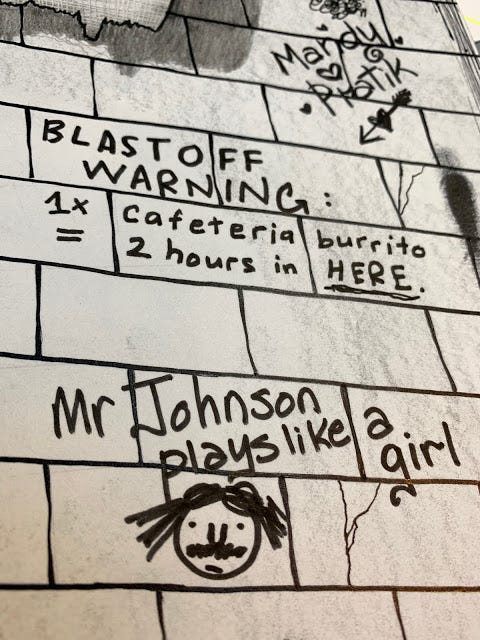 Mandy
Pratik
BLASTOFF
WARNING:
1x cafeteria burrito
= 2 hours in HERE.
Mr Johnson
plays like a
girl